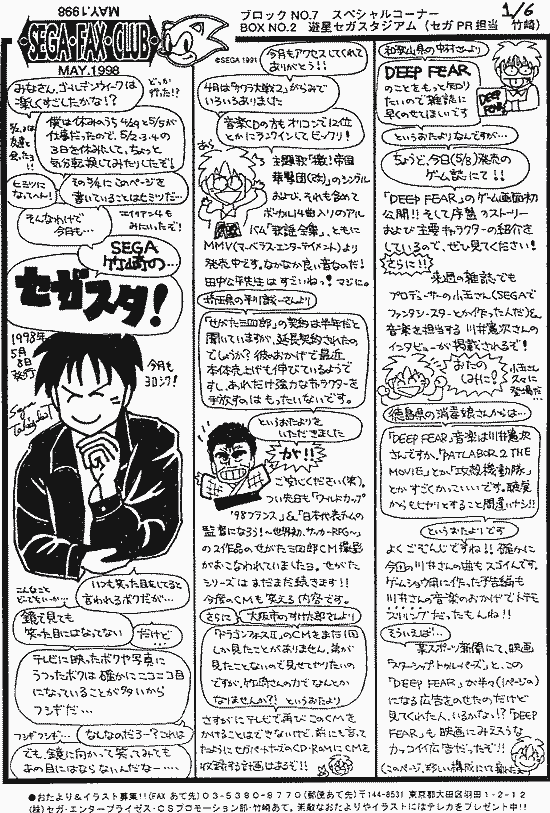 ブロックNO.7 スペシャルコーナー
BOX NO.2 遊星セガスタジアム (セガPR担当 竹崎)
1/6
MAY.1998
・SEGA・FAX・CLUB・
MAY.1998
©SEGA 1991
みなさん、ゴールデンウィークは
楽しくすごしたかな!?
どっか
行った!?
僕は休みのうち4/29と5/5が
仕事だったので、5/2・3・4の
3日を休みにして、ちょっと
気分転換してみたりしたぞ!
ヒミツに
なってへん!
その5/4にこのページを
書いていることはヒミツだ…
そんなわけで
今月も…
みたいたぞ!
SEGA
竹崎の…
セガスタ!
1998年
5月
8日
発行
今月も
ヨロシク!
こんなこと
いつも笑った目をしてると
言われるボクだが…
鏡で見ても
笑った目にはなってない
だけど…
テレビに映ったボクや写真に
うつったボクは確かにニコニコ目
になっていることが多いから
フシギだ…
フシギフシギ…
なんなのだろう…?これは
でも、鏡に向かって笑ってみても
あの目にはならないんだな……
今月もアクセスしてくれて
ありがとう!!
4月は「サクラ大戦2」がらみで
いろいろありました
音楽CDの方もオリコンで12位
とかにランクインしてビックリ!
あら
主題歌「檄!帝国
華撃団(改)」のシングル
および、それも含めて
ボーカル14曲入りのアル
バム「歌謡全集」、ともに
MMV(マーベラス・エンターテイメント)より
発売中です。なかなか良い音なのだ!
田中公平先生はすごいねっ!マジに。
埼玉県の平川誠一さんより
「せがた三四郎」の契約は半年だと
聞いていますが、延長契約されたの
でしょうか?彼のおかげで最近、
本体売上げも伸びているようで
すし、あれだけ強力なキャラクターを
手放すのはもったいないです。
というおたよりを
いただきました
ガ!!
ご安心ください(笑)。
つい先日も「ワールドカップ
'98フランス」&「日本代表チームの
監督になろう!〜世界初、サッカーRPG〜」
の2作品のせがた三四郎CM撮影
がおこなわれていましたヨ。せがた
シリーズはまだまだ続きます!!
今度のCMも笑える内容です。
さらに
大阪市のすけ太郎さんより
「ドラゴンフォースII」のCMをまだ1回
しか見たことがありません。弟が
見たことないので見せてやりたいの
ですが、竹崎さんの力でなんとか
なりませんか?!というおたより
さすがにテレビで再びこのCMを
かけることはできないけど、前にも言って
たようにセガ・パートナーズのCD-ROMにCMを
収録する計画はあるぞ!!
和歌山県の中村さんより
DEEP FEAR
のことをもっと知り
たいので雑誌に
早くのせてほしいです
DEEP
FEAR
というおたよりなんですが…
ちょうど、今日(5/8)発売の
ゲーム誌にて!!
「DEEP FEAR」のゲーム画面初
公開!!そして序盤のストーリー
および主要キャラクターの紹介を
しているので、ぜひ見てください!
さらに!!
来週の雑誌でも
プロデューサーの小玉さん(SEGAで
ファンタシースターとか作った人だ)と、
音楽を担当する川井憲次さんの
インタビューが掲載されるぞ!
おたの
しみに!
小玉さん
久々に
登場だ…
徳島県の消毒娘さんからは…
「DEEP FEAR」音楽は川井憲次
さんですか。「PATLABOR 2 THE
MOVIE」とか「攻殻機動隊」
とかすごくかっこいいです。聴覚
からもヒヤリとすること間違いナシ!!
というおたよりです
よくごぞんじですね!!確かに
今回の川井さんの曲もスゴイんです。
ゲームショウ用に作った予告編も
川井さんの音楽のおかげでトテモ
スリリングだったもんね!!
そういえば…
某スポーツ新聞にて、映画
「スターシップ・トゥルーパーズ」と、この
「DEEP FEAR」が半々(1ページの)
になる広告をのせたのだけど
見てくれた人、いるかない!?「DEEP
FEAR」も映画にみえそうな
カッコイイ広告だったぞ!!
●おたより&イラスト募集!!(FAXあて先)03-5380-8770(郵便あて先)〒144-8531 東京都大田区羽田1-2-12
(株)セガ・エンタープライゼス・CSプロモーション部・竹崎あて。素敵なおたよりやイラストにはテレカをプレゼント中!!